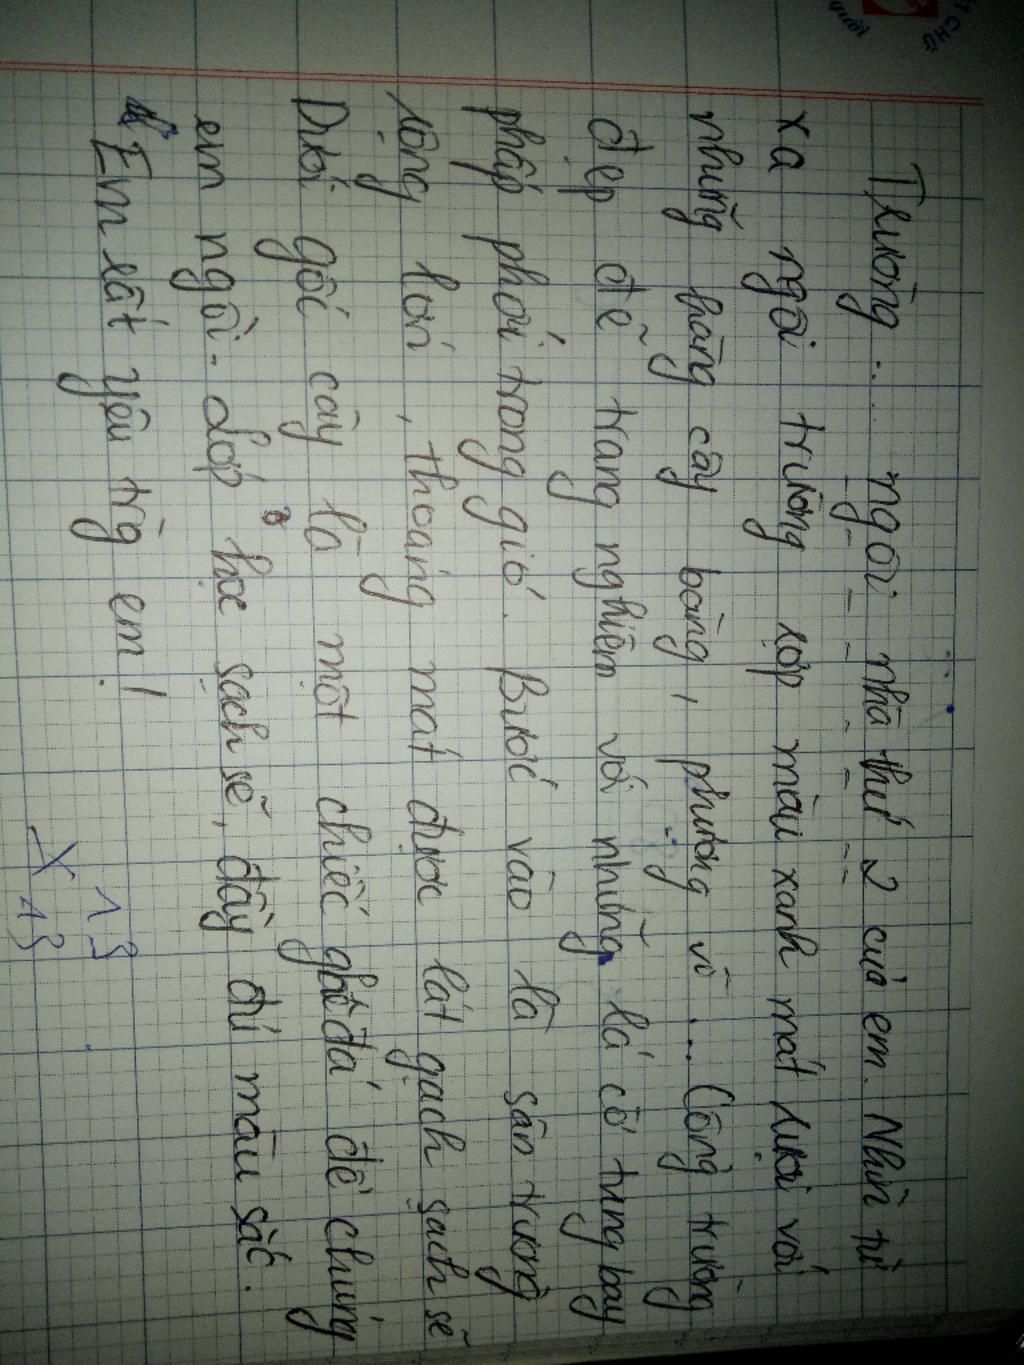 CHỮ
người
Trường ... ngôi nhà thứ 2 của em. Nhìn từ
xa ngôi trường rợp màu xanh mát rượi với
những hàng cây bàng, phượng vĩ ... Cổng trường
đẹp đẽ trang nghiêm với những lá cờ tung bay
phấp phới trong gió. Bước vào là sân trường
rộng lớn, thoáng mát được lát gạch sạch sẽ
Dưới gốc cây là một chiếc ghế đá để chúng
em ngồi. Lớp học sạch sẽ, đầy đủ màu sắc.
Em rất yêu trg em!
13
X 13